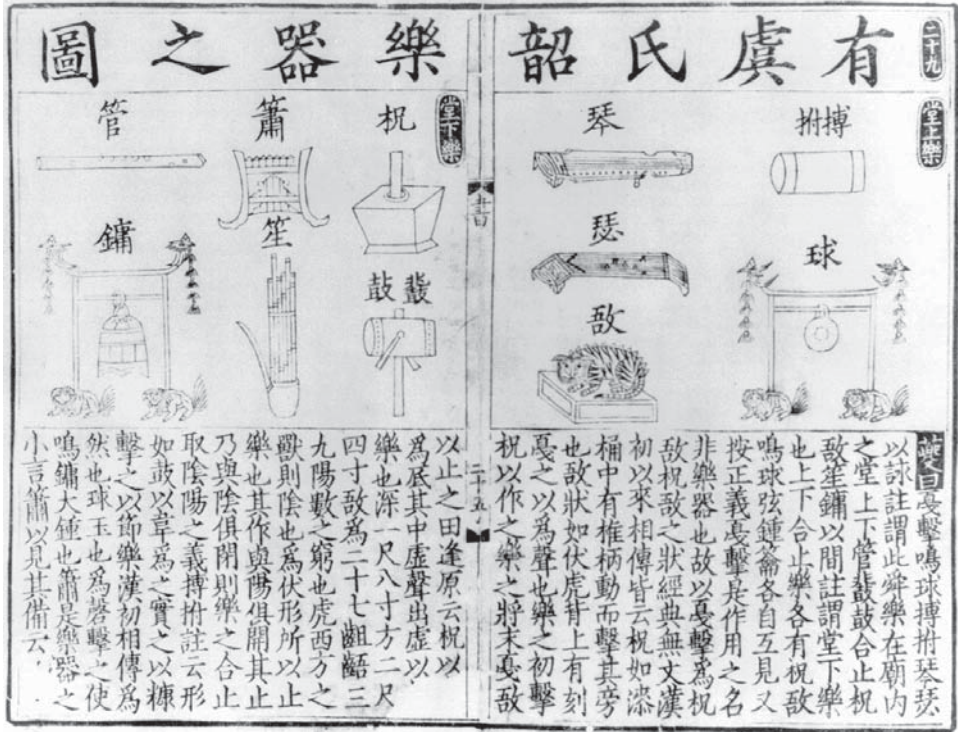 二十九
有虞氏韶
樂器之圖
堂上樂
搏拊
球
琴
瑟
敔
夔曰戛擊鳴球搏拊琴瑟
以詠註謂此舜樂在廟内
之堂上下管鼗鼓合止柷
敔笙鏞以間註謂堂下樂
也上下合止樂各有柷敔
鳴球弦鍾籥各自互見又
按正義戛擊是作用之名
非樂器也故以戛擊爲柷
敔柷敔之狀經典無文漢
初以來相傳皆云柷如漆
桶中有椎柄動而擊其旁
也敔狀如伏虎背上有刻
戛之以爲聲也樂之初擊
柷以作之樂之將末戛敔
書
二十五
堂下樂
柷
鼗鼓
簫
笙
管
鏞
以止之田逢原云柷以
爲底其中虛聲出虛以
樂也深一尺八寸方二尺
四寸敔爲二十七齟齬三
九陽數之窮也虎西方之
獸則陰也爲伏形所以止
樂也其作與陽俱開其止
乃與陰俱閉則樂之合止
取陰陽之義搏拊註云形
如鼓以韋爲之實之以糠
擊之以節樂漢初相傳爲
然也球玉也爲磬擊之使
鳴鏞大鍾也簫是樂器之
小言簫以見其備云